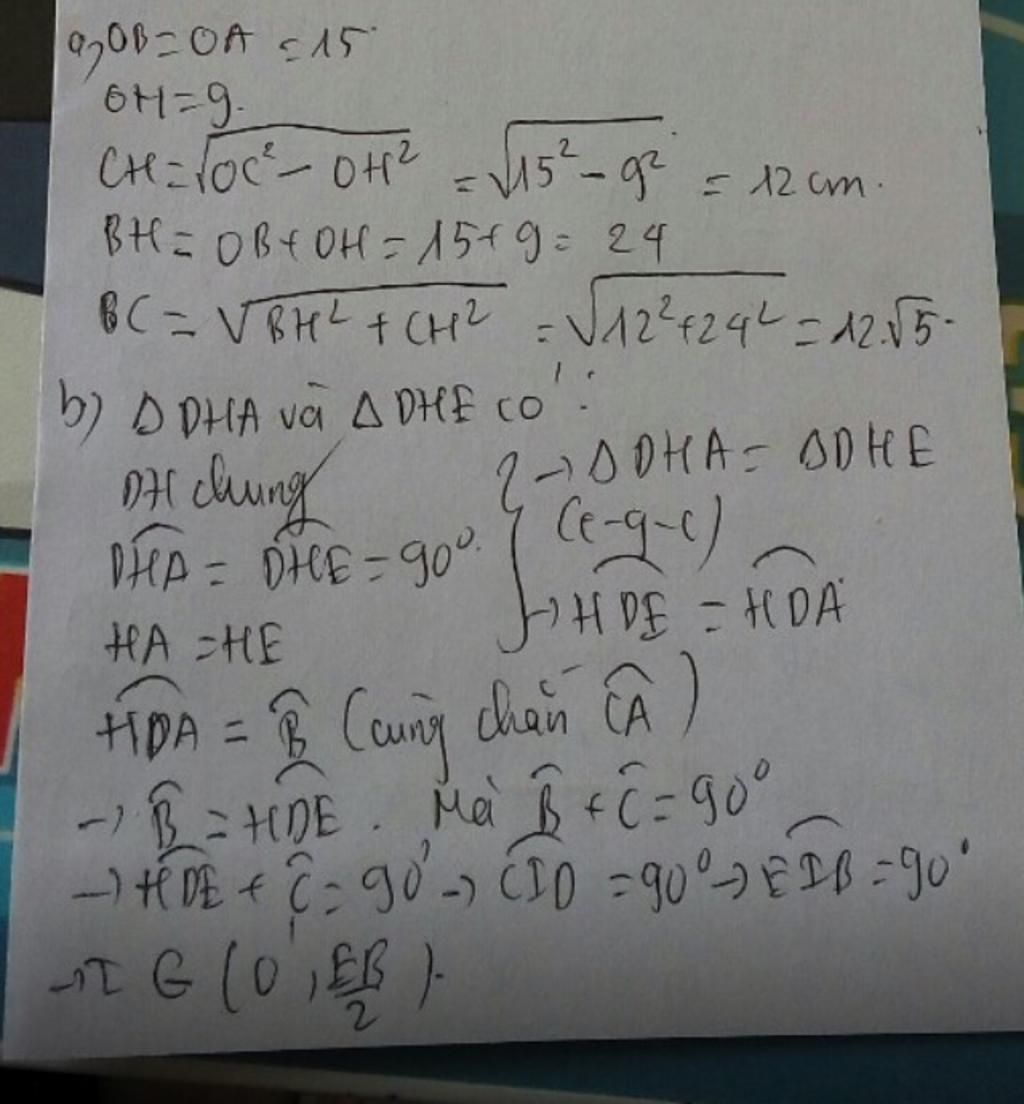 a, OB = OA = 15
OH = 9.
CH = √OC² − OH² = √15² − 9² = 12 cm.
BH = OB + OH = 15 + 9 = 24
BC = √BH² + CH² = √12² + 24² = 12.√5.
b) Δ DHA và Δ DHE có :
DH chung } → Δ DHA = Δ DHE
(c-g-c)
DHA = DHE = 90°. → HDE = HDA
HA = HE
HDA = B (cùng chắn CA)
→ B = HDE. Mà B + C = 90°
→ HDE + C = 90° → CID = 90° → EIB = 90°
→ I ∈ (O', EB/2).